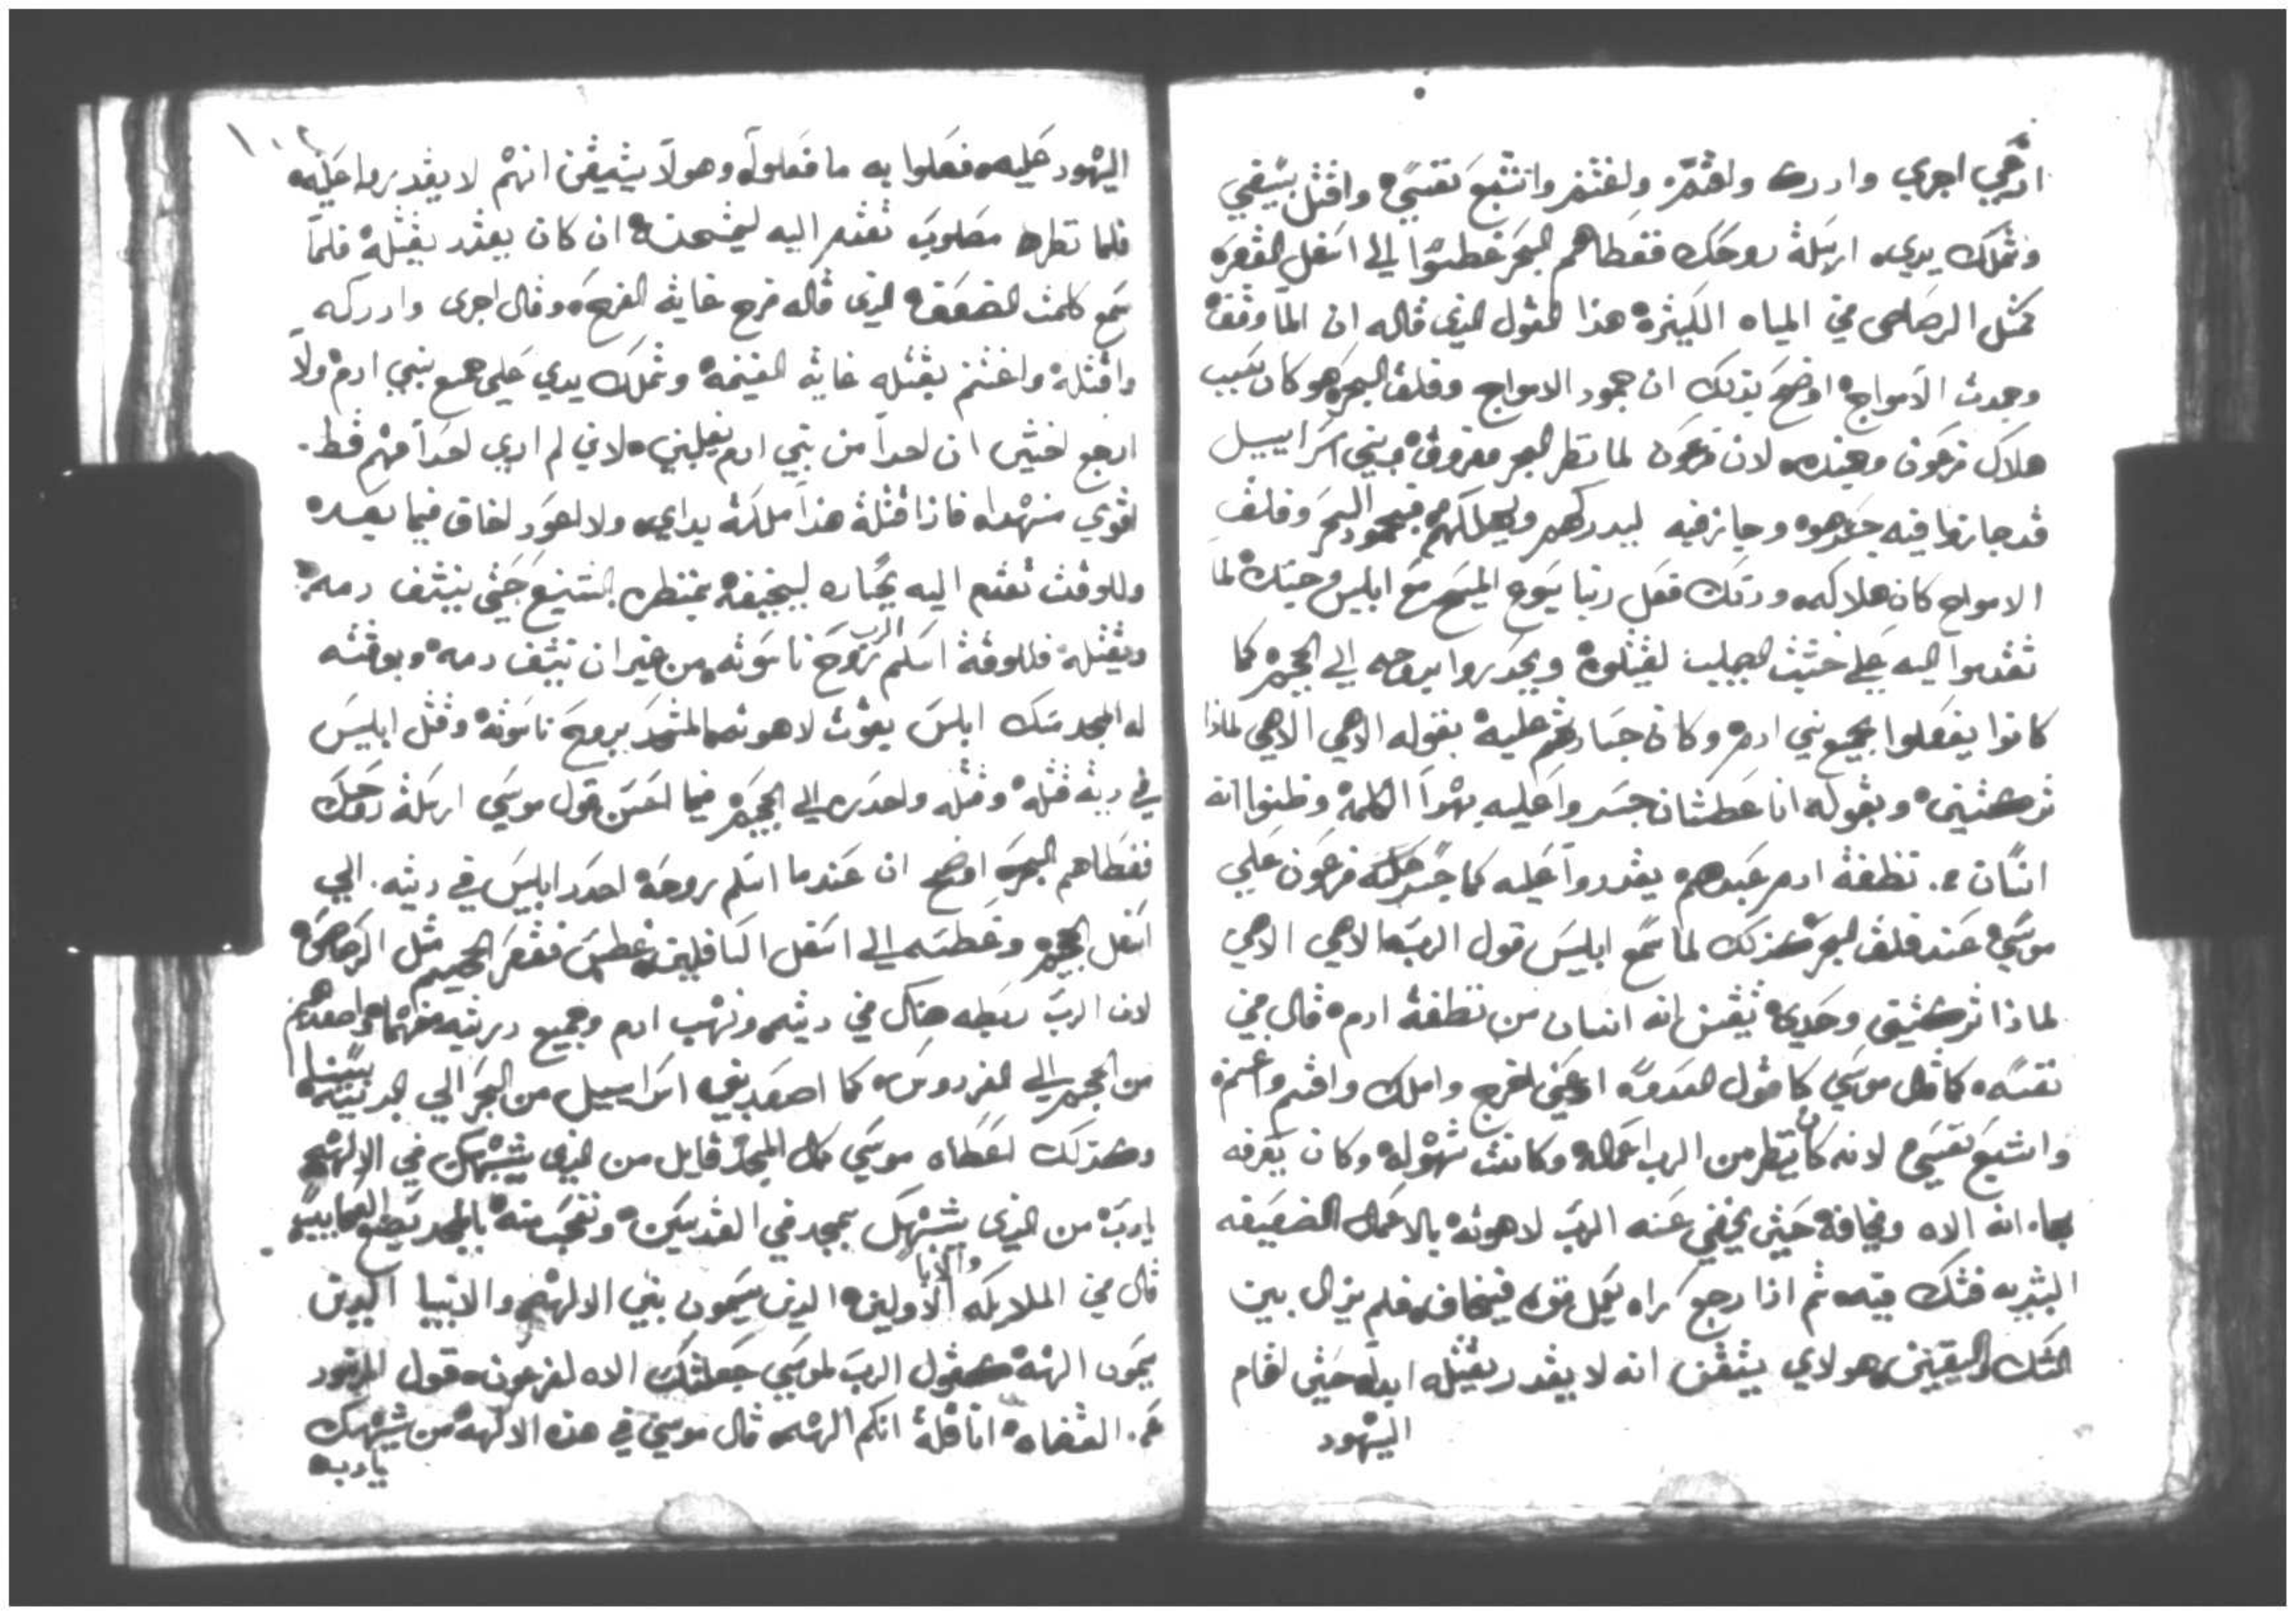 اركبي اجري وادرك واقتم ولغتنم واتشبع نفسي واقتل بسيفي
وتملك يدي ارسلة روحك فغطاهم البحر غطسوا الي اسفل القعر
كمثل الرصاص في المياه الكثيره هذا القول الذي قاله ان الما وقف
وجمدت الامواج اوضح بذلك ان جمود الامواج وفلق البحر هو كان سبب
هلاك فرعون وجنده لان فرعون لما نظر البحر مفروق وبني اسراييل
قد جازوا فيه جسر هوه وجاز فيه ليدركهم ويهلكهم فجمود البحر وفلق
الامواج كان هلاكه وذلك فعل ربنا يسوع المسيح مع ابليس وجنده لما
تقدموا اليه علي خشبت الصليب ليقتلوه ويحدروا بروحه الي الجحيم كما
كانوا يفعلوا بجميع بني ادم وكان جسارتهم عليه بقوله الاهي الاهي لماذا
تركتني وبقوله انا عطشان جسروا عليه بهدا الكلمه وظنوا انه
انسان من نطفة ادم عبدهم يقدروا عليه كما جسر فرعون علي
موسي عند فلق البحر كذلك لما سمع ابليس قول الرب الاهي الاهي
لماذا تركتني وحدي تيقن انه انسان من نطفة ادم قال في
نفسه كما قال موسي كما قول العدو اركبي اخرج واملك واقتم واغتنم
واشبع نفسي لانه كان ينظر من الرب اعماله وكانت تهوله وكان يعرفه
بها انه الاه ويخافه حتي يخفي عنه الرب لاهوته بالاعمال الضعيفه
البشريه فشك فيه ثم اذا رجع راه يعمل قوه فيخاف فلم يزال بين
الشك واليقين وهو لاي يتقن انه لا يقدر يقتله ابدا حتي اقام
اليهود
اليهود عليه ففعلوا به ما فعلوا وهو لا يتيقن انهم لا يقدروا عليه
فلما نظره مصلوب تقدم اليه ليمتحنه ان كان يقدر يقتله فلما
سمع كلمت الضعف الذي قاله فرح غاية الفرح وقال اجري وادركه
واقتله واغتنم بقتله غاية الغنمه وتملك يدي علي جميع بني ادم ولا
ارجع اخشي ان احدا من بني ادم يغلبني لاني لم اري احدا منهم قط
اقوي من هدا فاذا قتلة هذا ملكة يداي ولا اعود اخاف فيما بعده
وللوقت تقدم اليه بجباره ليخيفه بمنظره الشنيع حتي ينشف دمه
ويقتله فللوقة اسلم الرب روح ناسوته من غير ان ينشف دمه وبوقته
له المجد مسك ابليس بقوت لاهوته المتحد بروح ناسوته وقتل ابليس
في ريته قتله وقتله واحدره الي الجحيم فيما احسن قول موسي ارسلة روحك
فغطاهم البحر اوضح ان عندما اسلم روحه احدر ابليس في ريته الي
اسفل الجحيم وغطسه الي اسفل السافلين غطس فقعر الجحيم مثل الرصاص
لان الرب ربطه هناك في ريته ونهب ادم وجميع دريته منها واصعدهم
من الجحيم الي الفردوس كما اصعد بني اسراييل من البحر الي البريه
وكذلك اعطاه موسي كل المجد قايل من الذي يشبهك في الالهه
يارب من الذي يشبهك بمجد في القديسين وتعجب منه بالمجد يصنع العجايب
قال في الملايكه والابا الاولين الذين يسمون بني الالهه والانبيا الذين
يسمون الهه كقول الرب لموسي جعلتك الاه لفرعون قول المزمور
عن القضاه انا قلة انكم الهه قال موسي في هذه الالهه من يشبهك
يارب